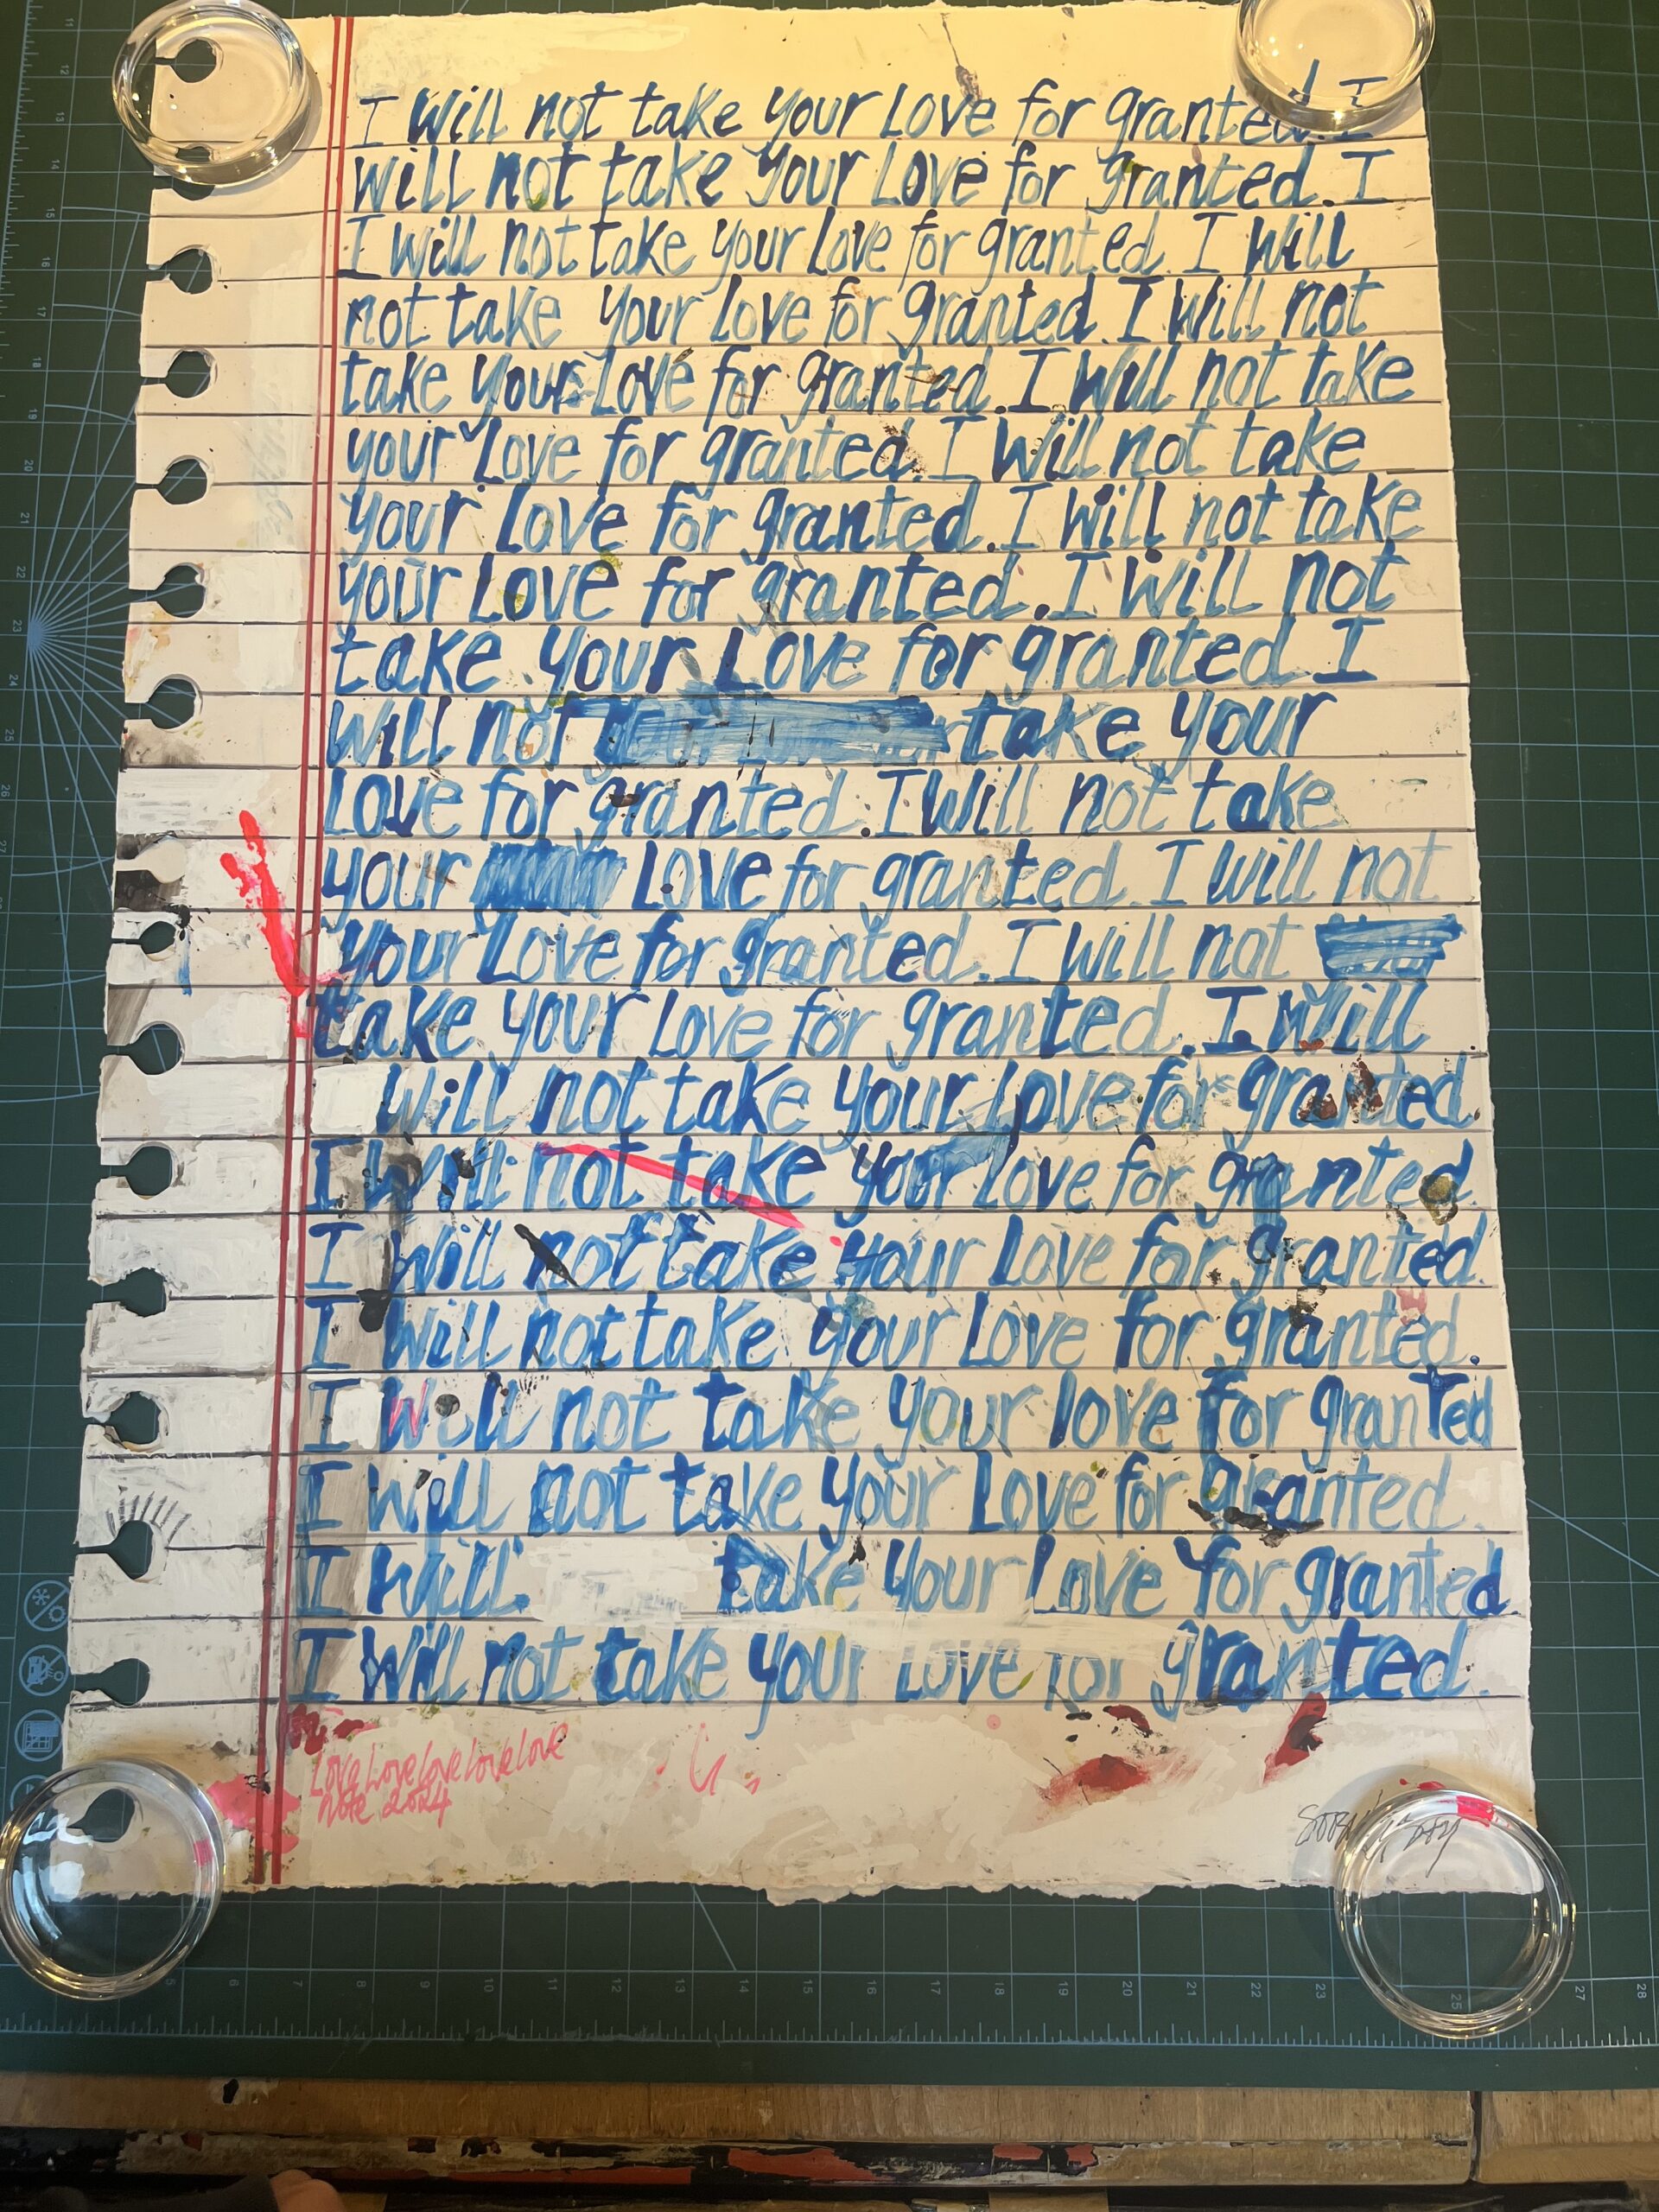 I will not take your Love for granted. I
will not take your Love for granted. I
I will not take your Love for granted. I will
not take your Love for granted. I will not
take your Love for granted. I will not take
your Love for granted. I will not take
your Love for granted. I will not take
your Love for granted. I will not
take your Love for granted I
will not take your
Love for granted. I will not take
your Love for granted. I will not
your Love for granted. I will not
take your Love for granted. I will
will not take your Love for granted.
I will not take your Love for granted.
I will not take your Love for granted.
I will not take your Love for granted.
I will not take your love for granted
I will not take your Love for granted.
I will. take your Love for granted.
I will not take your Love for granted.
Love Love love love love
note 2024